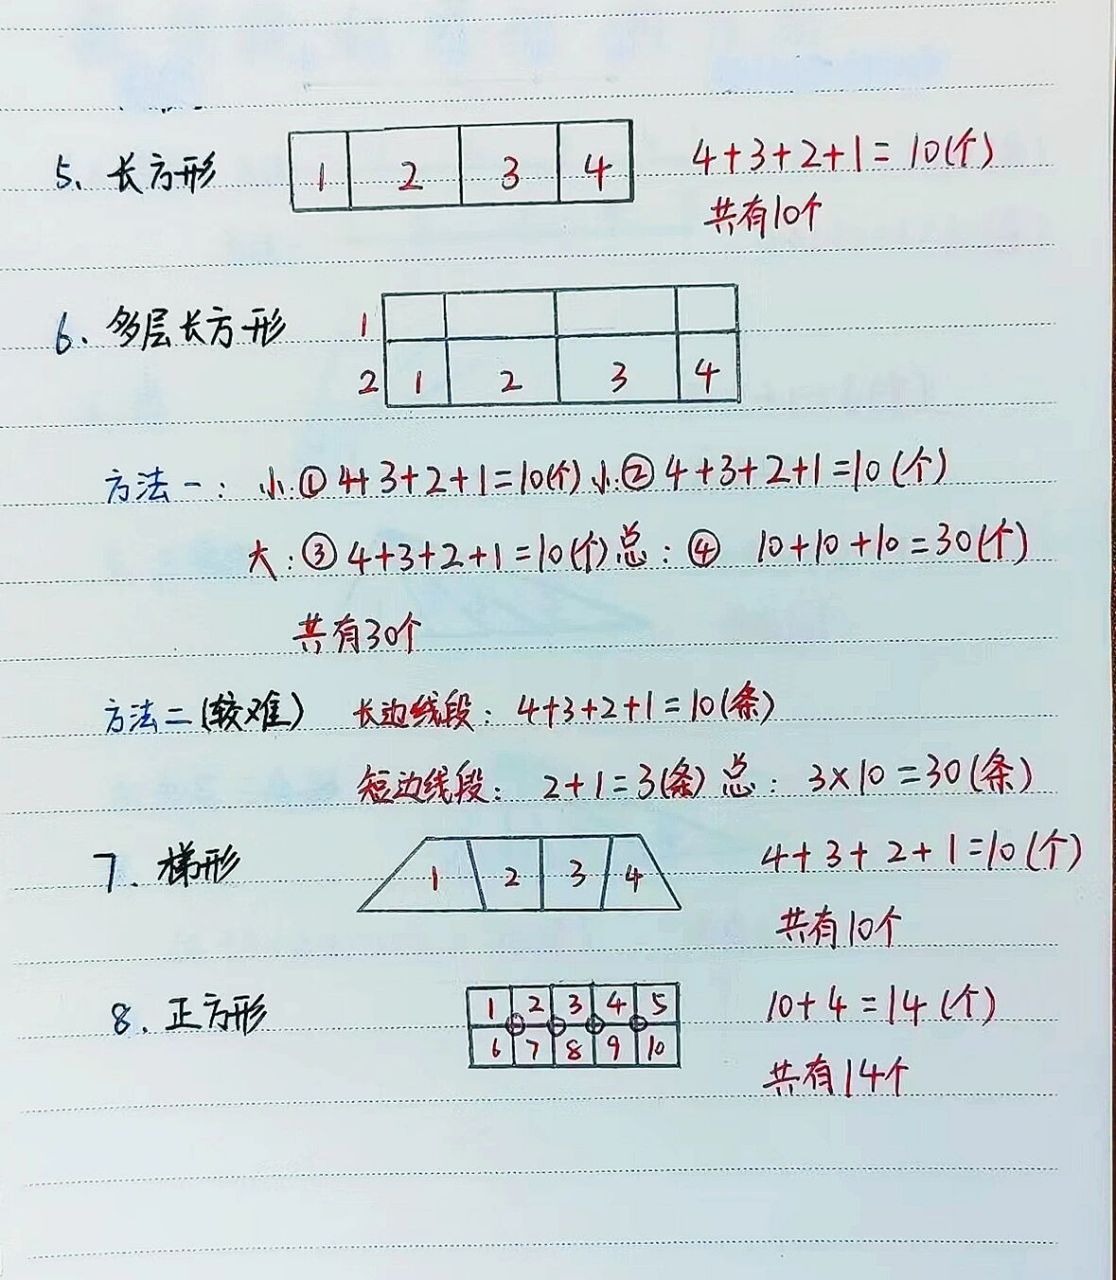 5、长方形 1 2 3 4 4+3+2+1=10(个)
共有10个
6、多层长方形 1
2 1 2 3 4
方法一：小:①4+3+2+1=10(个)小:②4+3+2+1=10(个)
大:③4+3+2+1=10(个)总:④ 10+10+10=30(个)
共有30个
方法二(较难) 长边线段：4+3+2+1=10(条)
短边线段：2+1=3(条)总：3×10=30(条)
7、梯形 1 2 3 4 4+3+2+1=10(个)
共有10个
8、正方形 1 2 3 4 5 10+4=14(个)
6 7 8 9 10
共有14个